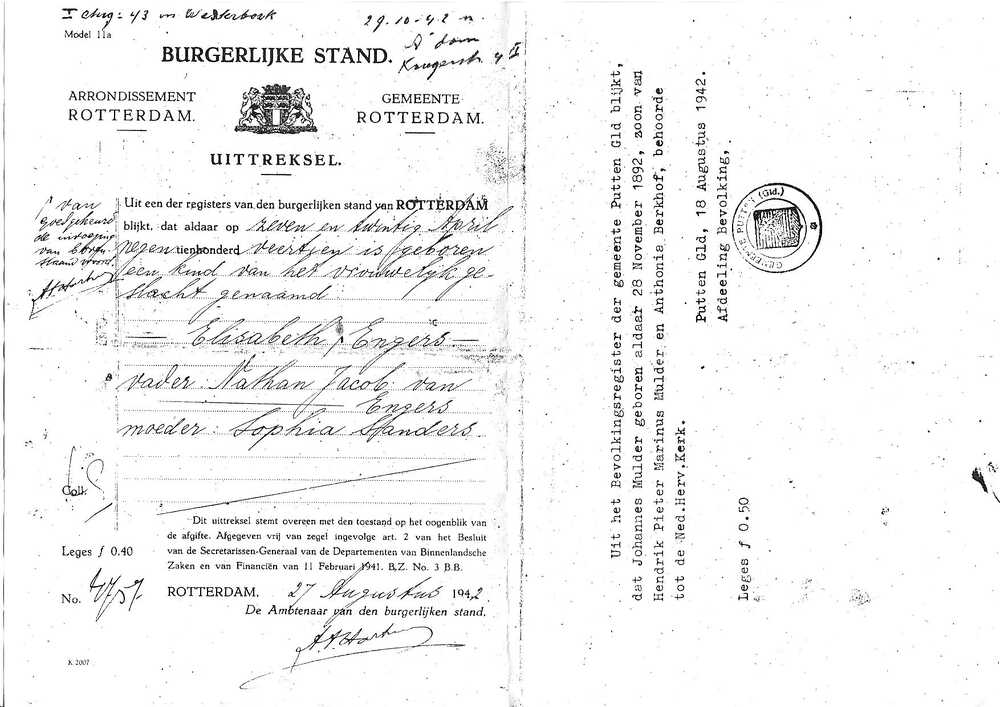 I chrg: 43 in Westerbork
29.10-42 n.
A'dam
Krugerstr 4 I
Model 11a
BURGERLIJKE STAND.
ARRONDISSEMENT
ROTTERDAM.
GEMEENTE
ROTTERDAM.
UITTREKSEL.
van
goedgekeurd
de invoeging
van boven-
staand woord
A.A. Harten
Uit een der registers van den burgerlijken stand van ROTTERDAM
blijkt, dat aldaar op zeven en twintig April
negentienhonderd veertien is geboren
een kind van het vrouwelijk ge-
slacht genaamd:
— Elisabeth / Engers —
vader: Nathan Jacob van
Engers
moeder: Sophia Standers.
Coll.
Dit uittreksel stemt overeen met den toestand op het oogenblik van
de afgifte. Afgegeven vrij van zegel ingevolge art. 2 van het Besluit
van de Secretarissen-Generaal van de Departementen van Binnenlandsche
Zaken en van Financiën van 11 Februari 1941. B.Z. No. 3 B.B.
Leges ƒ 0.40
No.
ROTTERDAM, 27 Augustus 1942
De Ambtenaar van den burgerlijken stand.
A.A. Harten
K 2007
Uit het Bevolkingsregister der gemeente Putten Gld blijkt,
dat Johannes Mulder geboren aldaar 28 November 1892, zoon van
Hendrik Pieter Marinus Mulder en Anthonia Berkhof, behoorde
tot de Ned.Herv.Kerk.
Putten Gld, 18 Augustus 1942.
Afdeeling Bevolking,
GEMEENTE PUTTEN (Gld.)
Leges ƒ 0.50